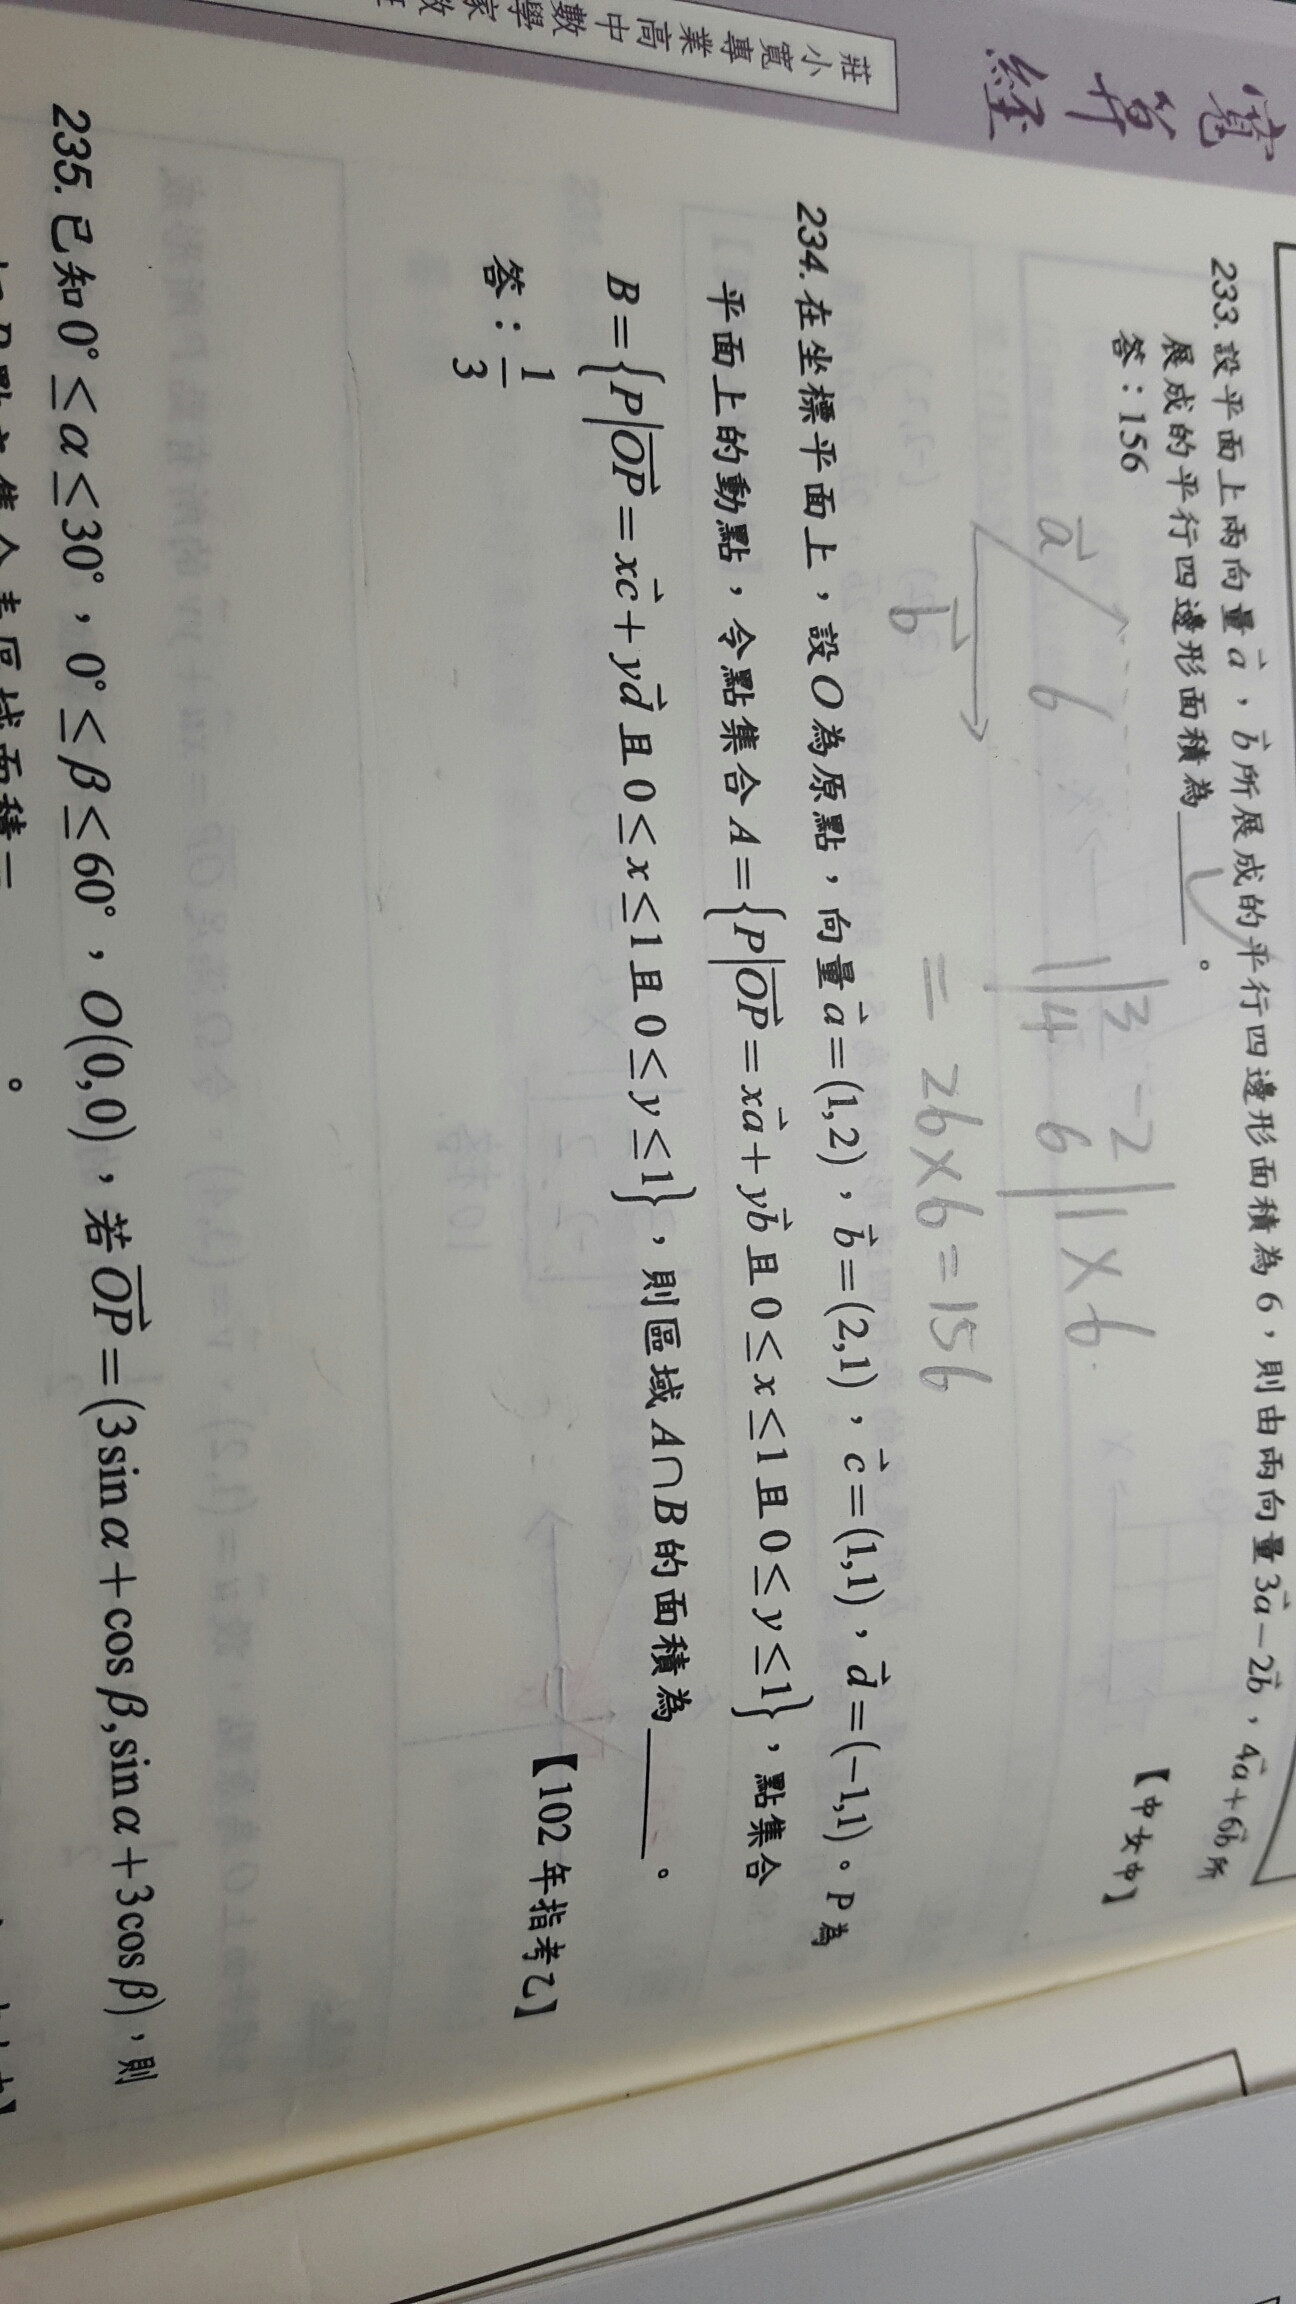 寬算經
莊小寬專業高中數學家教
233. 設平面上兩向量a⃗，b⃗所展成的平行四邊形面積為6，則由兩向量3a⃗−2b⃗，4a⃗+6b⃗所
展成的平行四邊形面積為______。
【中女中】
答：156
a⃗
b⃗
6
|3 −2|
|4 6| × 6
= 26×6=156
234. 在坐標平面上，設O為原點，向量a⃗=(1,2)，b⃗=(2,1)，c⃗=(1,1)，d⃗=(−1,1)。P為
平面上的動點，令點集合A={P|OP⃗=xa⃗+yb⃗且0≤x≤1且0≤y≤1}，點集合
B={P|OP⃗=xc⃗+yd⃗且0≤x≤1且0≤y≤1}，則區域A∩B的面積為______。
【102年指考乙】
答：1/3
235. 已知0°≤α≤30°，0°≤β≤60°，O(0,0)，若OP⃗=(3sinα+cosβ,sinα+3cosβ)，則